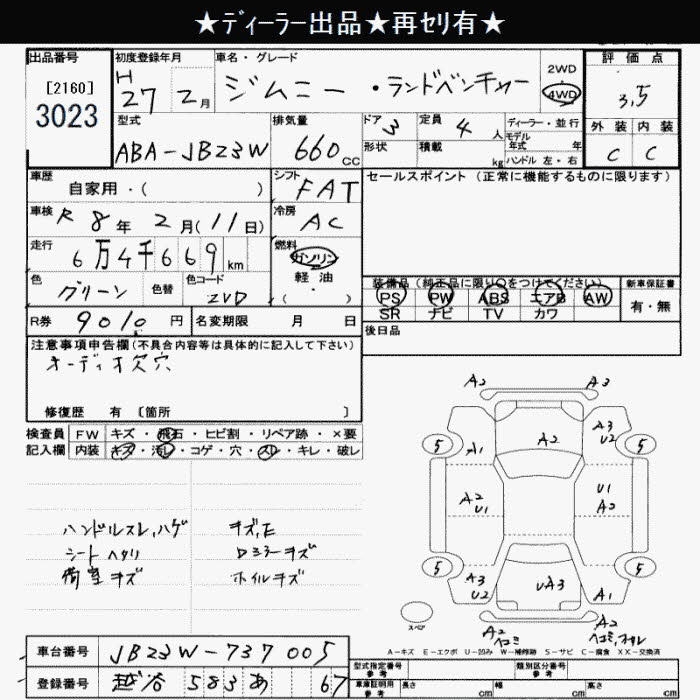 ★ディーラー出品★再セリ有★
出品番号 初度登録年月 車名・グレード 評価点
[2160] H 27 2月 ジムニー・ランドベンチャー 2WD 4WD 3.5
3023
型式 排気量 ドア 3 定員 4人 ディーラー・並行 外装 内装
ABA-JB23W 660cc 形状 積載 kg モデル年式 年 C C
ハンドル 左・右
車歴 自家用・( ) シフト FAT セールスポイント (正常に機能するものに限ります)
車検 R 8年 2月(11日) 冷房 AC
走行 6万4千669km 燃料 ガソリン
軽油
・( )
色 グリーン 色替 色コード ZVD
装備品 (純正品に限り○をつけてください) 新車保証書
PS PW ABS エアB AW 有・無
SR ナビ TV カワ
R券 9010円 名変期限 月 日 後日品
注意事項申告欄(不具合内容等は具体的に記入して下さい)
オーディオ欠穴
修復歴 有 [箇所 ]
検査員 FW キズ・飛石・ヒビ割・リペア跡・×要
記入欄 内装 キズ・汚レ・コゲ・穴・スレ・キレ・破レ
ハンドルスレ,ハゲ キズ,E
シートヘタリ ロミラーキズ
荷室キズ ホイルキズ
A3 A3
A3
U2
A2
5 A1 5
A2
U1
U1
A2
5 5
A3
U2
UA3 A1
A2
ヘコミ
A2
スペア
A-キズ E-エクボ U-凹み W-補修跡 S-サビ C-腐食 XX-交換済
車台番号 JB23W-737005 型式指定番号 参考 類別区分番号 参考
登録番号 越谷 583 あ 67 車庫証明用 参考 長さ cm 幅 cm 高さ cm